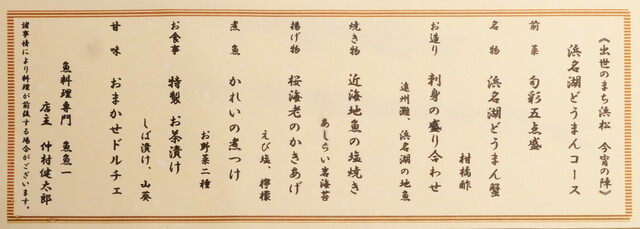 《出世のまち浜松 今宵の陣》
浜名湖どうまんコース
前菜 旬彩五点盛
名物 浜名湖どうまん蟹
柑橘酢
お造り 刺身の盛り合わせ
遠州灘、浜名湖の地魚
焼き物 近海地魚の塩焼き
あしらい岩海苔
揚げ物 桜海老のかきあげ
えび塩、檸檬
煮魚 かれいの煮つけ
お野菜二種
お食事 特製 お茶漬け
しば漬け、山葵
甘味 おまかせドルチェ
魚料理専門 魚魚一
店主 仲村健太郎
諸事情により料理が前後する場合がございます。